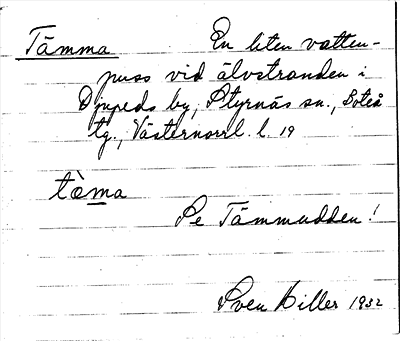 Tämma En liten vatten-
puss vid älvstranden i
Djupeds by, Styrnäs sn., Boteå
tg., Västernorrl. l. 19
tὲma
Se Tämmudden!
Sven Hiller 1932